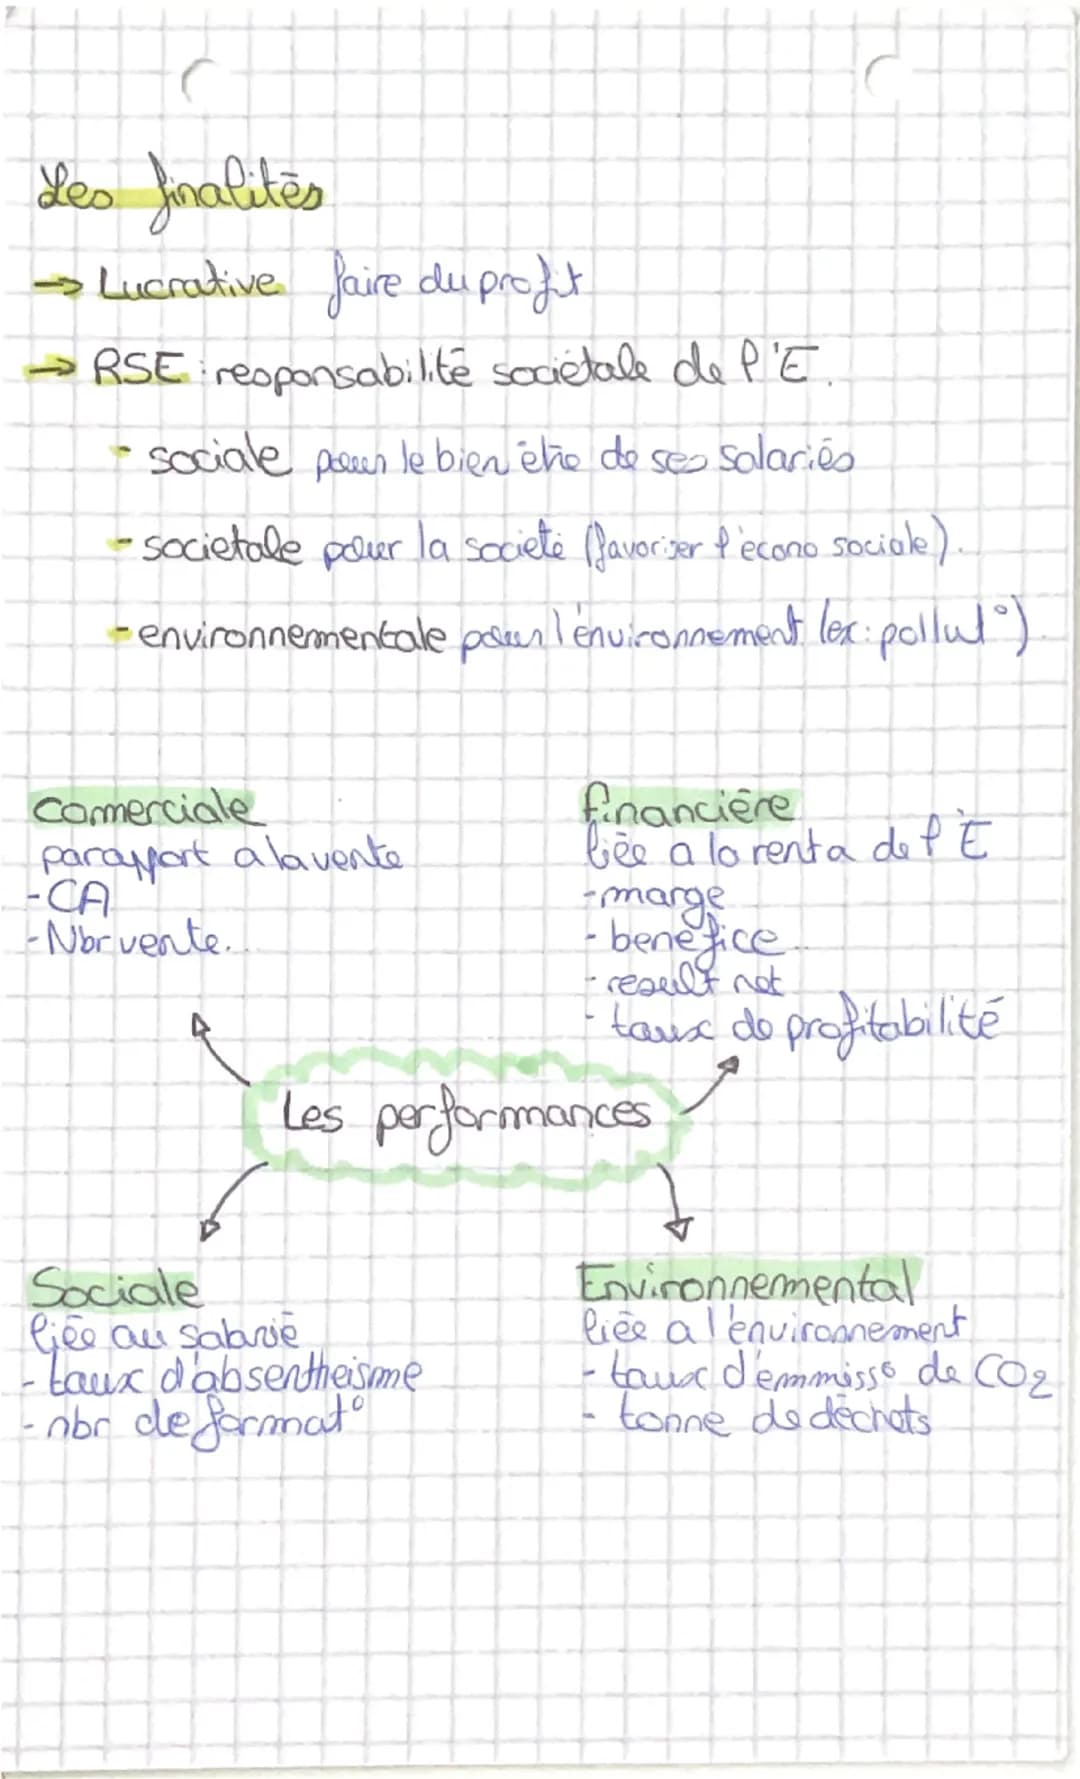 Les finalités
→ Lucrative faire du profit
→ RSE : responsabilité sociétale de l'E.
- sociale pour le bien être de ses salariés
- societale pour la societé (favoriser l'écono sociale).
- environnementale pour l'environnement (ex: pollut°).
Comerciale
parapport a la vente
- CA
- Nbr vente...
financière
liée a la renta de l'E
- marge
- benefice
- result net
- taux de profitabilité
Les performances
Sociale
liée au salarié
- taux d'absentheisme
- nbr de format°
Environnemental
liée a l'environnement
- taux d'émmiss° de CO2
- tonne de déchets